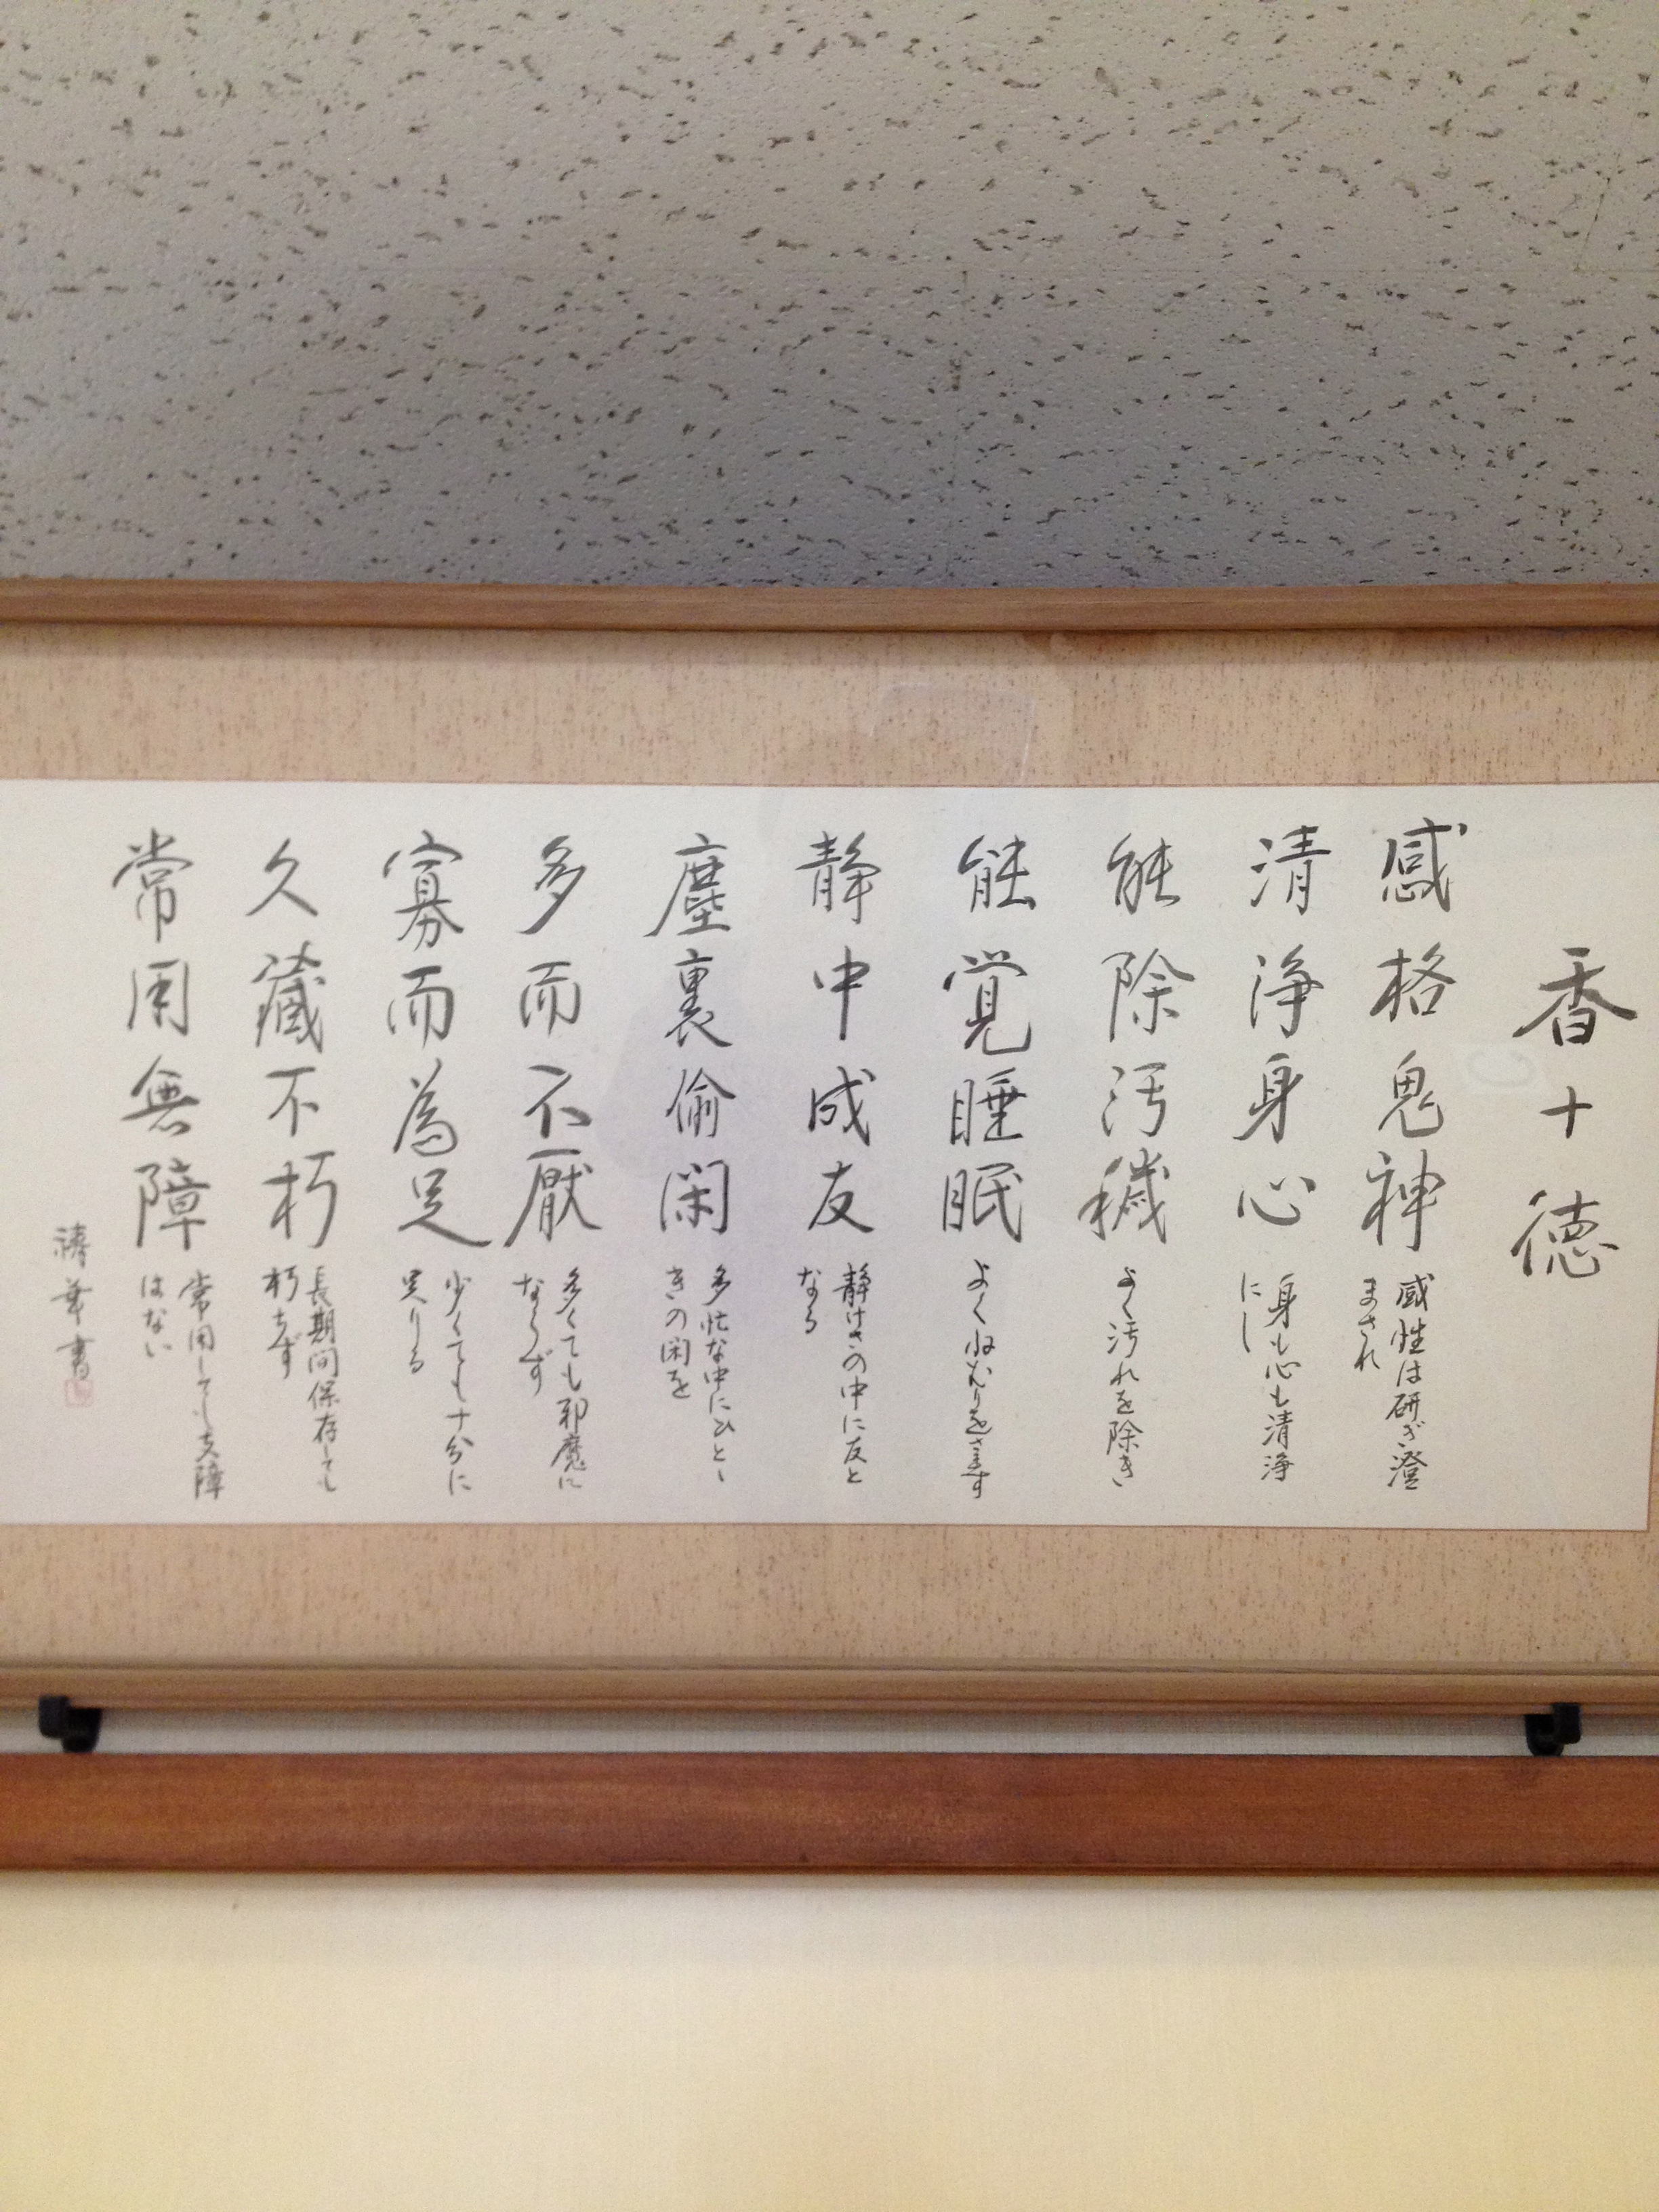 香十徳
感格鬼神
感性は研ぎ澄
まされ
清浄身心
身も心も清浄
にし
能除汚穢
よく汚れを除き
能覚睡眠
よくねむりをさます
静中成友
静けさの中に友と
なる
塵裏偸閑
多忙な中にひとゝ
きの閑を
多而不厭
多くても邪魔に
ならず
寡而為足
少くても十分に
足りる
久蔵不朽
長期間保存しても
朽ちず
常用無障
常用しても支障
はない
華書